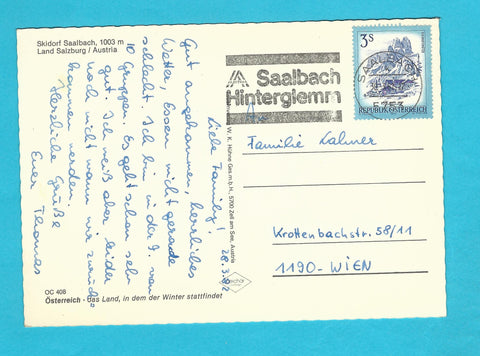 Skidorf Saalbach, 1003 m
Land Salzburg / Austria
Liebe Family!
28.3.82
Gut angekommen, herrliches
Wetter, Essen nicht gerade
schlecht. Ich bin in der 9. von
10 Gruppen. Es geht schon sehr
gut. Ich weiß aber leider
noch nicht wann wir zurück-
kommen werden.
Herzliche Grüße
Euer Thomas
OC 408
Österreich - das Land, in dem der Winter stattfindet
W. K. Hühne Ges.m.b.H., 5700 Zell am See, Austria
Saalbach
Hinterglemm
3S
REPUBLIK ÖSTERREICH
5753
Familie Lahner
Krottenbachstr. 58/11
1190-WIEN